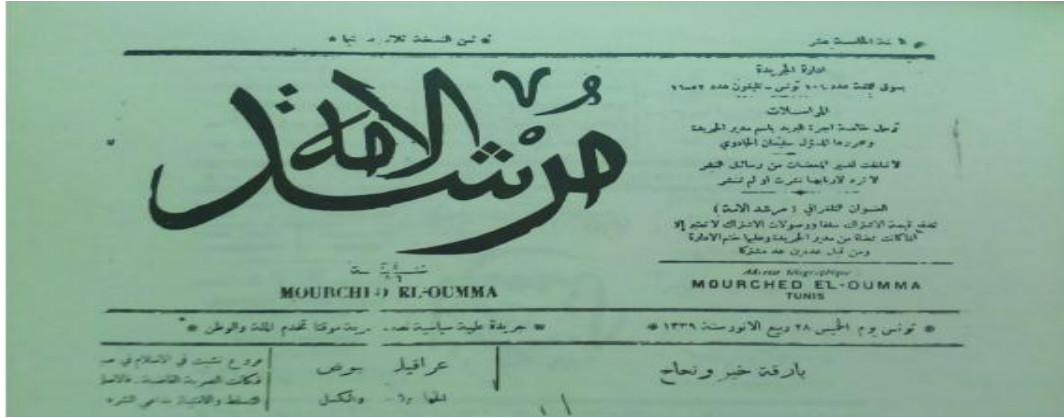 السنة الخامسة عشر
* ثمن النسخة ثلاثون
ادارة الجريدة
بسوق عدد ١٠٦ تونس - تليفون عدد
المراسلات
ترسل خالصة اجرة البريد باسم مدير الجريدة
ومحررها المسؤل سليمان الجادوي
لا تلتفت لغير الممضاة من رسائل النشر
لا ترد لاربابها نشرت او لم تنشر
العنوان التلغرافي ( مرشد الامة )
تدفع قيمة الاشتراك سلفا ووصولات الاشتراك لا تعتبر إلا
اذا كانت ممضاة من مدير الجريدة وعليها ختم الادارة
ومن قبل عددين عد مشتركا
Adresse télégraphique
MOURCHED EL-OUMMA
TUNIS
مرشد الامة
MOURCHED EL-OUMMA
* تونس يوم الخميس ٢٨ ربيع الانور سنة ١٣٣٩ *
* جريدة علمية سياسية موقتا تخدم الملة والوطن *
بارقة خير ونجاح
عراقيل
والكسل
تشبت في الاسلام في
فكانت الضربة القاضية
التسلط والامتياز